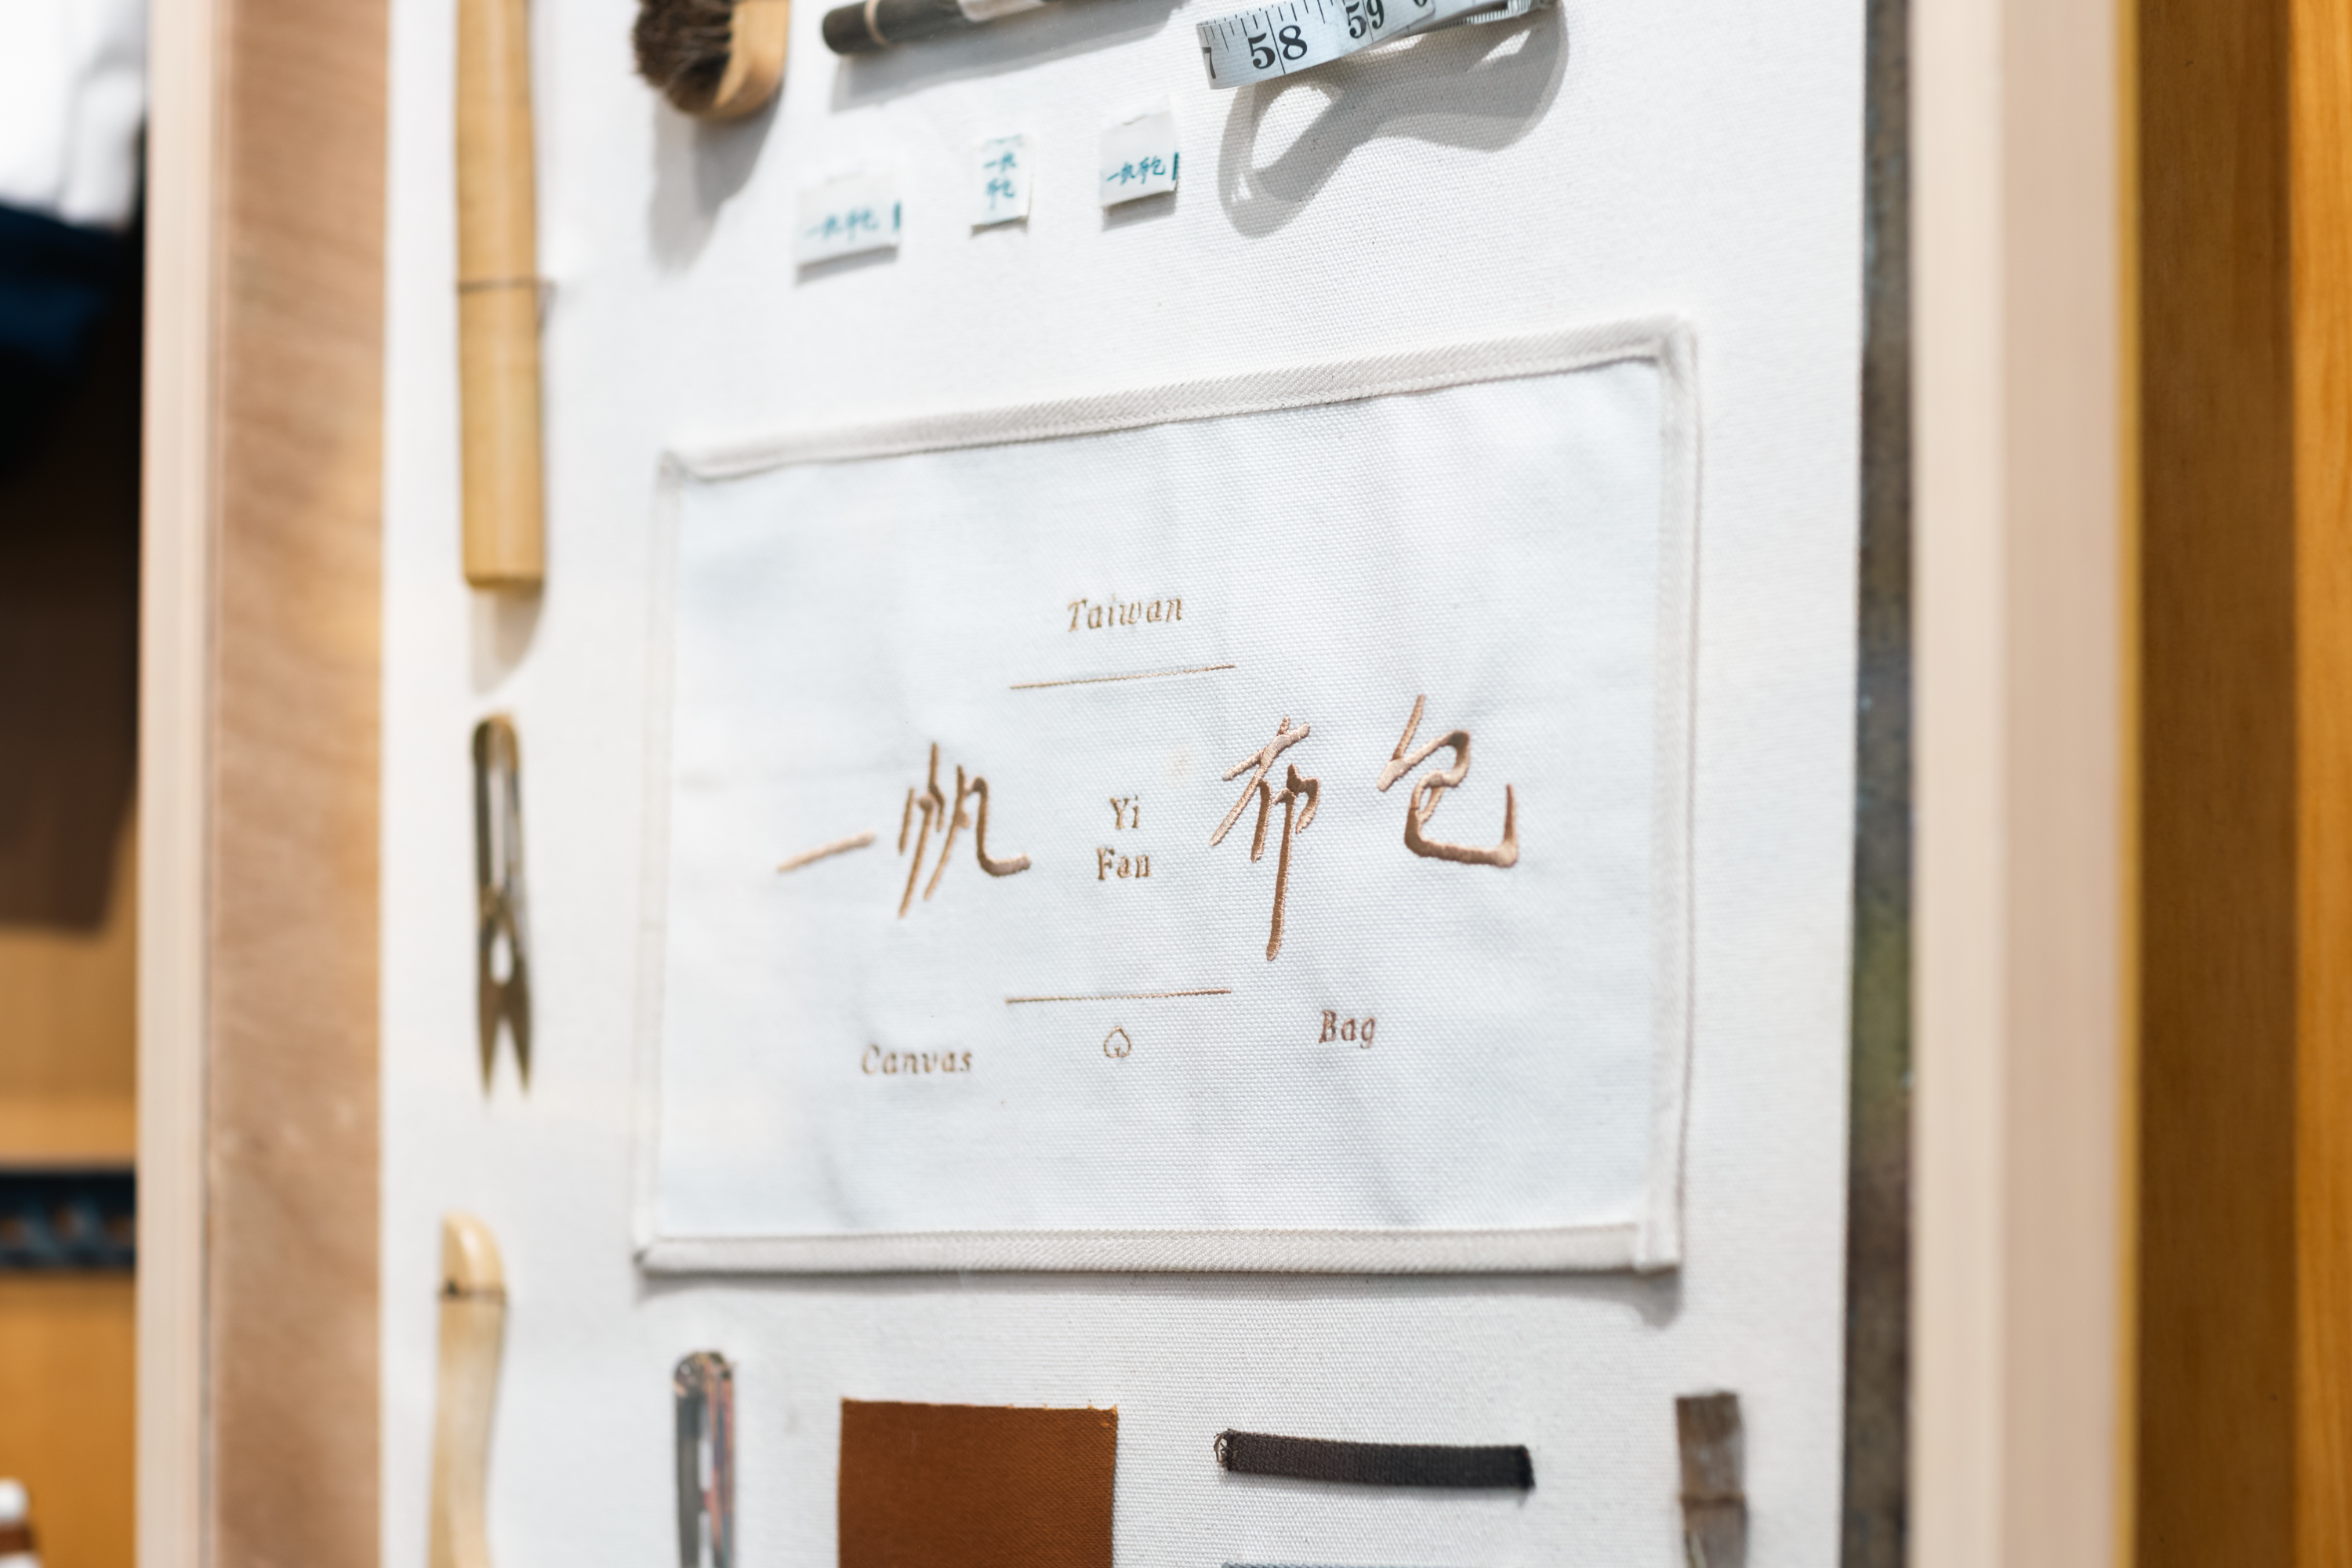 7 58 59
一帆布包
一帆
布包
一帆布包
Taiwan
一帆 Yi Fan 布包
Canvas
Bag